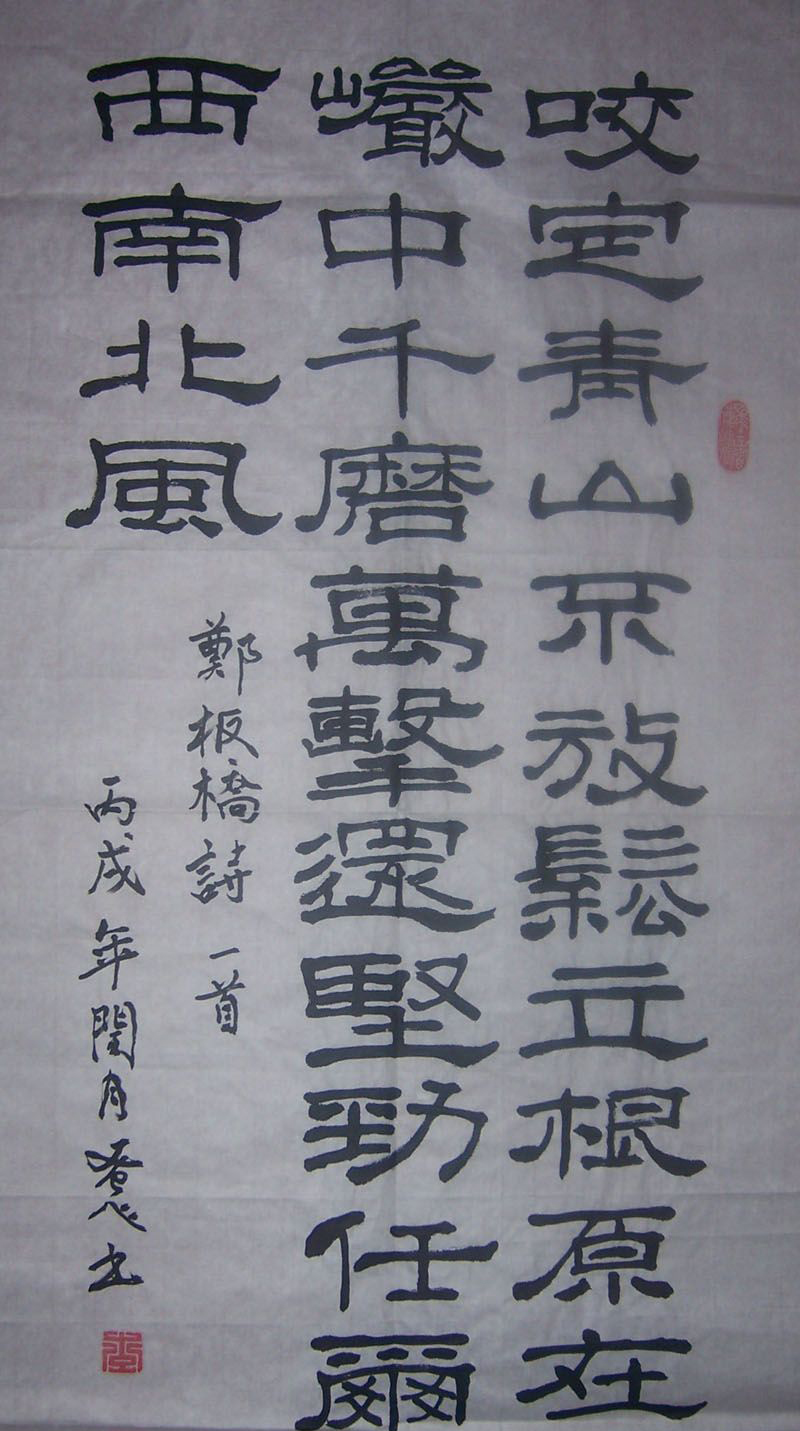 咬定青山不放鬆立根原在
巗中千磨萬擊還堅勁任爾
西南北風
鄭板橋詩一首
丙戌年閏月